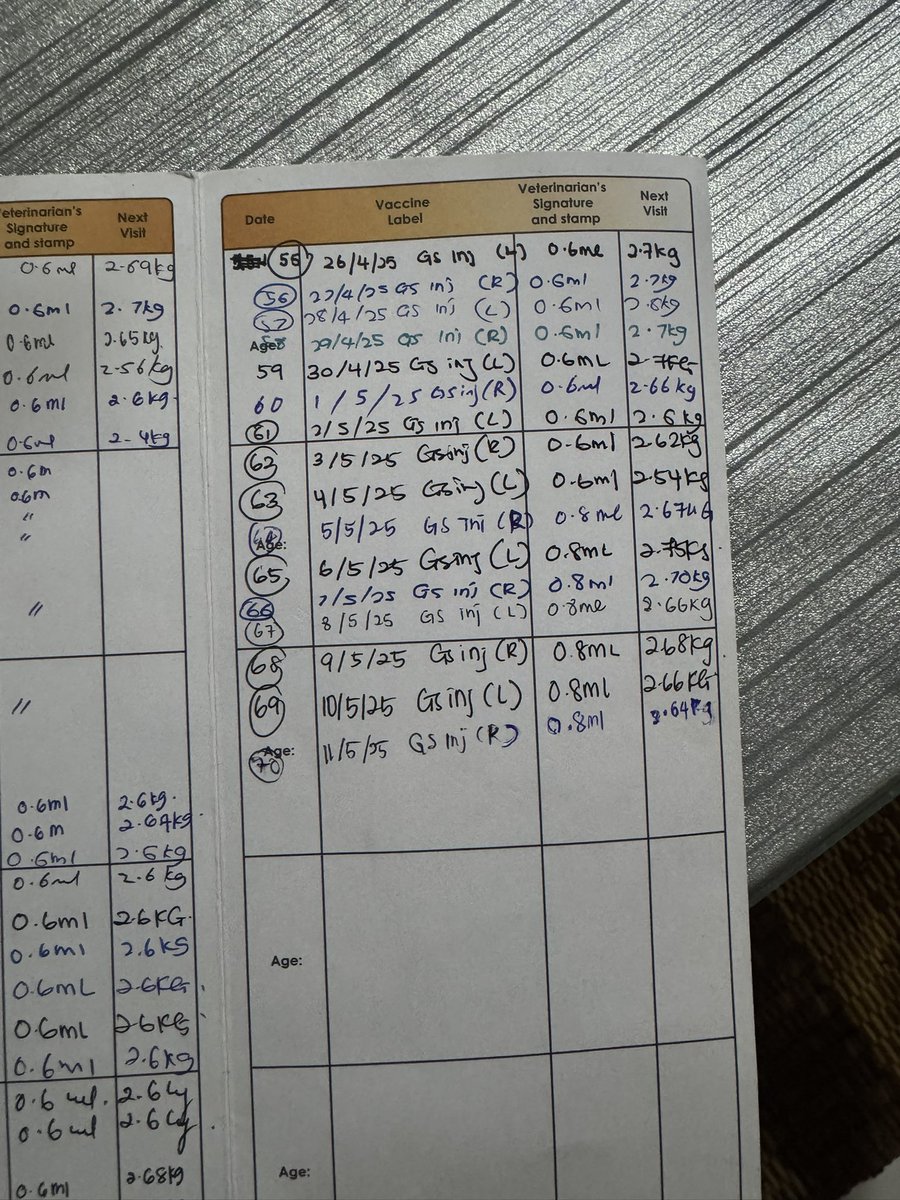 Veterinarian's Signature and stamp
Next Visit
0.6ml 2.69kg
0.6ml 2.7kg
0.6ml 2.65kg
0.6ml 2.56kg
0.6ml 2.6kg
0.6ml 2.4kg
0.6m
0.6m
"
"
"
"
0.6ml 2.6kg
0.6m 2.64kg
0.6ml 2.6kg
0.6ml 2.6kg
0.6ml 2.6KG
0.6ml 2.6KG
0.6mL 2.6KG
0.6mL 2.6KG
0.6ml 2.6kg
0.6ml 2.6kg
0.6ml 2.6kg
0.6ml 2.68kg
Date
Vaccine Label
Veterinarian's Signature and stamp
Next Visit
26/4/25 GS inj (L) 0.6ml 2.7kg
56 27/4/25 GS inj (R) 0.6ml 2.7kg
57 28/4/25 GS inj (L) 0.6ml
Age: 29/4/25 GS Inj (R) 0.6ml 2.7kg
59 30/4/25 GS inj (L) 0.6mL
60 1/5/25 GS inj (R) 0.6ml 2.66kg
61 2/5/25 GS inj (L) 0.6ml 2.6kg
63 3/5/25 GS inj (R) 0.6ml 2.62kg
63 4/5/25 GS inj (L) 0.6ml 2.54kg
Age: 5/5/25 GS Inj (R) 0.8ml 2.67KG
65 6/5/25 GS inj (L) 0.8mL 2.75KG
66 7/5/25 GS inj (R) 0.8ml 2.70kg
67 8/5/25 GS inj (L) 0.8ml 2.66kg
68 9/5/25 GS inj (R) 0.8mL 2.68kg
69 10/5/25 GS inj (L) 0.8ml 2.66KG
Age: 70 11/5/25 GS inj (R) 0.8ml
Age:
Age: